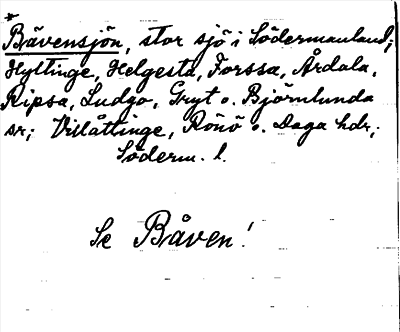 *
Bävensjön, stor sjö i Södermanland;
Hyltinge, Helgesta, Forssa, Årdala,
Ripsa, Ludgo, Gryt o. Björnlunda
sr; Villåttinge, Rönö o. Daga hdr;
Söderm. l.
Se Båven!